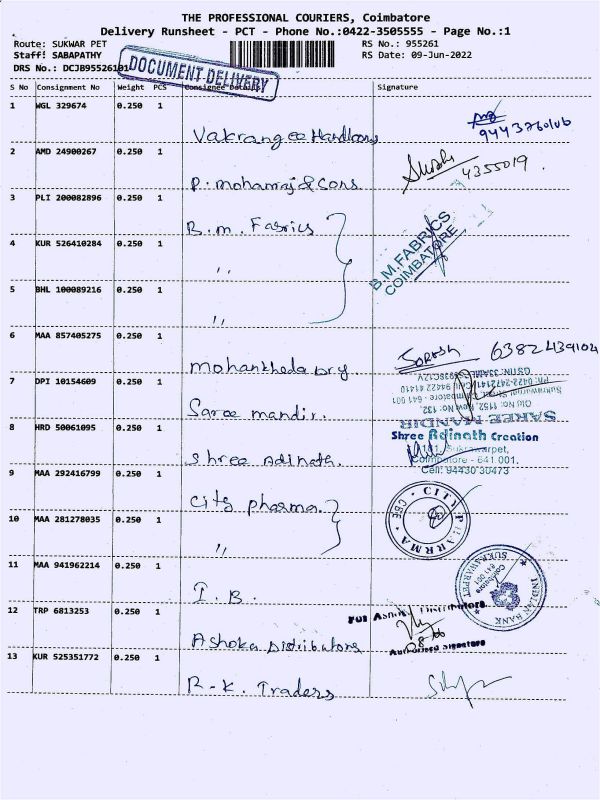 THE PROFESSIONAL COURIERS, Coimbatore
Delivery Runsheet - PCT - Phone No.:0422-3505555 - Page No.:1
Route: SUKWAR PET RS No.: 955261
Staff: SABAPATHY RS Date: 09-Jun-2022
DRS No.: DCJB95526101
DOCUMENT DELIVERY
S No Consignment No Weight PCS Consignee Details Signature
1 WGL 329674 0.250 1
Vakrangee Handlooms
2 AMD 24900267 0.250 1
P. mohamaj & Cons 4355019
3 PLI 200082896 0.250 1
B.m. Fabrics
B.M.FABRICS
COIMBATORE
4 KUR 526410284 0.250 1
"
5 BHL 100089216 0.250 1
"
6 MAA 857405275 0.250 1
SURESH 6382439104
7 DPI 10154609 0.250 1
Saree mandir.
SAREE MANDIR
Old No: 1152, New No: 132,
8 HRD 50061095 0.250 1
Shree Adinath.
Shree Adinath Creation
Sukrawarpet,
Coimbatore - 641 001.
Cell: 94430 30473
9 MAA 292416799 0.250 1
City pharma.
CITY PHARMA
CBE
10 MAA 281278035 0.250 1
"
11 MAA 941962214 0.250 1
I.B.
INDIAN BANK
SUKRAWARPET
Coimbatore
641 001
12 TRP 6813253 0.250 1
Ashoka Distributors
For Ashoka Distributors
Authorised Signatore
13 KUR 525351772 0.250 1
R-K. Traders